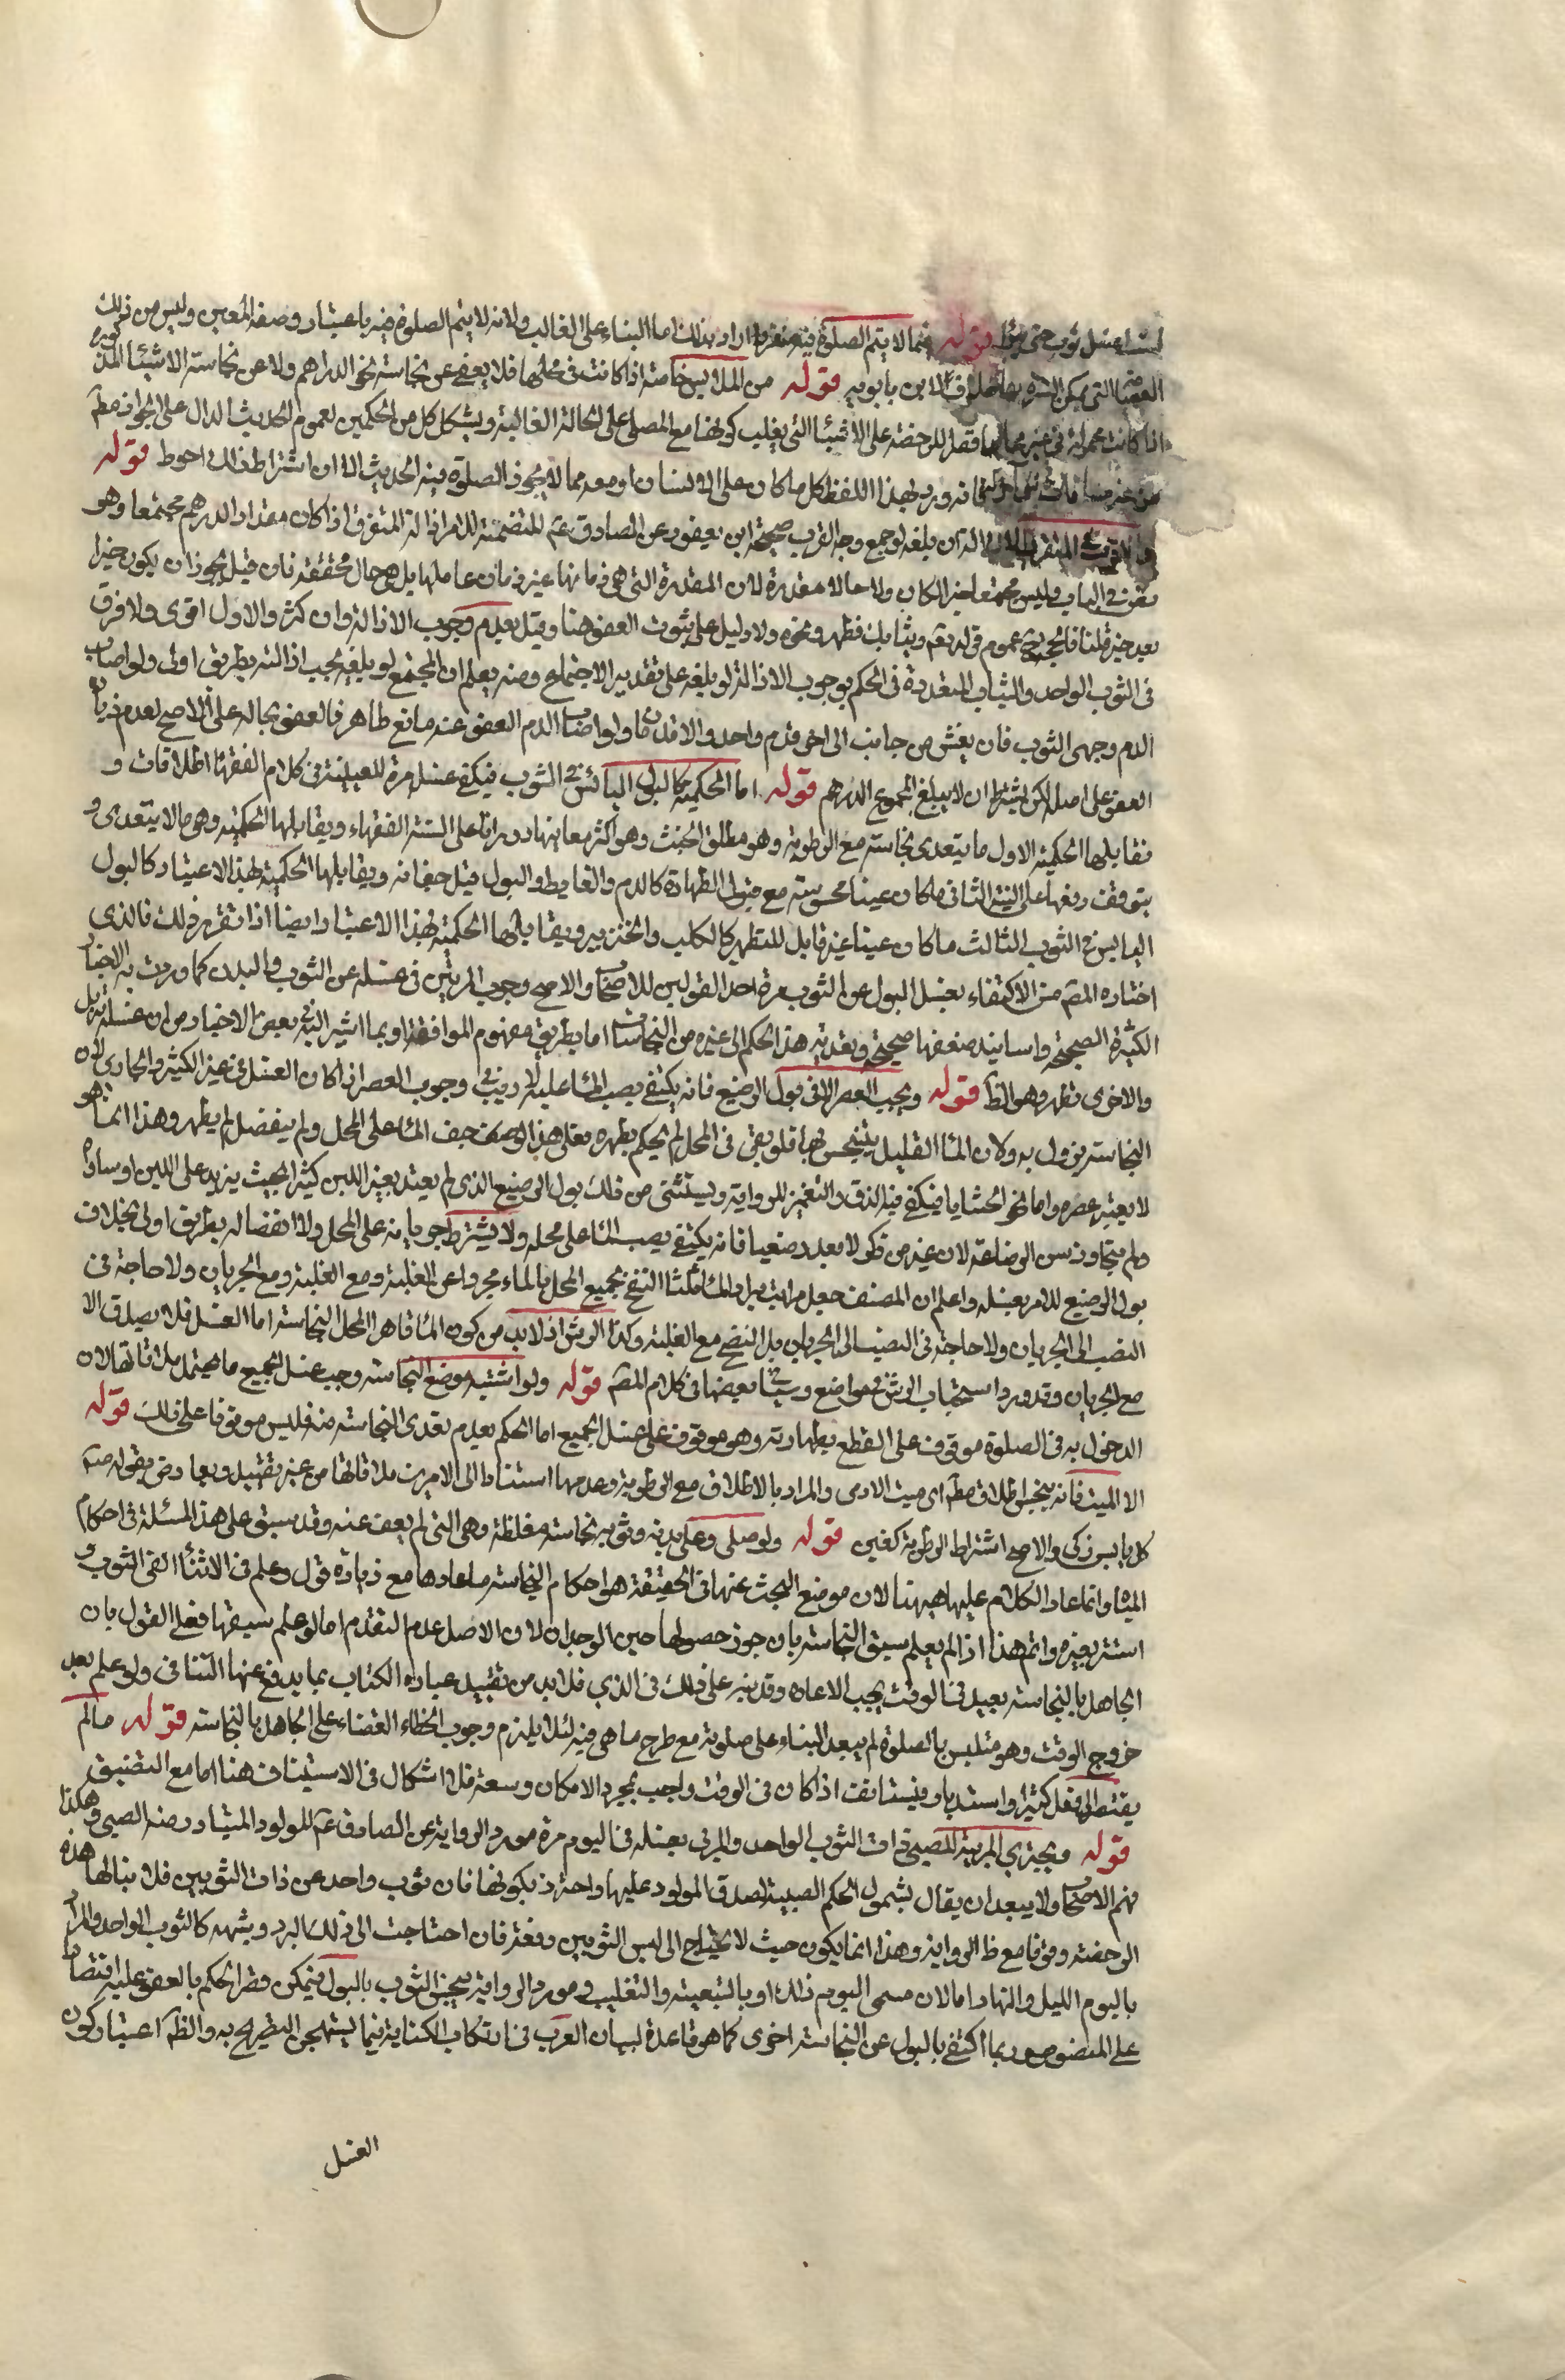 غسل ثوب حتى قوله مما لا يتم الصلوة فيه منفردا اراد بذلك اما البناء على الغالب ولانه لا يتم الصلوة فيه باعتبار وصفه المعين وليس من ذلك
العمامة التى يمكن الستر بها خلافا لابن بابويه قوله من الملابس خاصة اذا كانت فى محلها فلا يعفى عن نجاسة نحو الدراهم ولا عن نجاسة الاشياء المذكورة
اذا كانت محمولة فى غير محالها قصرا للرخصة على الاشياء التى يغلب كونها مع المصلى على الحالة الغالبة ويشكل كل من الحكمين لعموم الحديث الدال على الجواز مطم
فانه ورد بهذا اللفظ كل ما كان على الانسان او معه مما لا يجوز الصلوة فيه الحديث الا ان اشتراط ذلك احوط قوله
والاقرب فى المتفرق الازالة ان بلغه لو جمع وجه القرب صحيحة ابن يعفور عن الصادق عم المتضمنة للامر ازالة المتفرق اذا كان مقدار الدرهم مجتمعا وهو
متفرق فى الثياب وليس مجتمعا خبر الكان ولا حالا مقدرة لان المقدرة التى هى زمانها غير زمان عاملها بل هو حال محققة فان قيل يجوز ان يكون خبرا
بعد خبر قلنا فالحجة ح عموم قوله تعم وثيابك فطهر ونحوه ولا دليل على ثبوت العفو هنا وقيل بعدم وجوب الازالة وان كثر والاول اقوى ولا فرق
فى الثوب الواحد والثياب المتعددة فى الحكم بوجوب الازالة لو بلغه على تقدير الاجتماع ومنه يعلم ان المجتمع لو بلغه يجب ازالته بطريق اولى ولو اصاب
الدم وجهى الثوب فان تفشى من جانب الى اخر فدم واحد والا فدمان ولو اصاب الدم المعفو عنه مائع طاهر فالعفو بحاله على الاصح لعدم زيادة
العفو على اصله لكن يشترط ان لا يبلغ المجموع الدرهم قوله اما الحكمية كالبول اليابس فى الثوب فيكفى غسل مرة للعينية فى كلام الفقهاء اطلاقات و
تقابلها الحكمية الاول ما يتعدى نجاسته مع الرطوبة وهو مطلق الخبث وهو اكثر معانيها دورانا على السنة الفقهاء ويقابلها الحكمية وهو ما لا يتعدى و
يتوقف رفعها على النية الثانى ما كان عينا محسوسة مع قبول الطهارة كالدم والغايط والبول قبل جفافه ويقابلها الحكمية بهذا الاعتبار كالبول
اليابس فى الثوب الثالث ما كان عينا غير قابل للتطهير كالكلب والخنزير ويقابلها الحكمية بهذا الاعتبار ايضا اذا تقرر ذلك فالذى
اختاره المصم من الاكتفاء بغسل البول عن الثوب مرة احد القولين للاصحاب والاصح وجوب المرتين فى غسله عن الثوب والبدن كما وردت به الاخبار
الكثيرة الصحيحة واسانيد ضعفها صحيحة وتعدية هذا الحكم الى غيره من النجاسات اما بطريق مفهوم الموافقة او بما اشير اليه فى بعض الاخبار من ان غسلة تزيل
والاخرى تطهر وهو الظ قوله ويجب العصر الا فى بول الرضيع فانه يكتفى بصب الماء عليه لا ريب فى وجوب العصر اذا كان الغسل فى غير الكثير والجارى لان
النجاسة يزول به ولان الماء القليل يتنجس بها فلو بقى فى المحل لم يحكم بطهره فعلى هذا لو جف الماء على المحل ولم ينفصل لم يطهر وهذا انما هو
لا يعتبر عصره واما نحو الحشايا فيكفى فيه الدق والتغميز للرواية ويستثنى من ذلك بول الرضيع الذى لم يعتد بغير اللبن كثيرا بحيث يزيد على اللبن او ساواه
ولم يتجاوز سن الرضاعة لان غيره من ذكر لا يعد رضيعا فانه يكتفى بصب الماء على محله ولا يشترط جريانه على المحل ولا انفصاله بطريق اولى بخلاف
بول الرضيع للامر بغسله واعلم ان المصنف جعل مراتب الماء ثلثا النضح بجميع المحل بالماء مجردا عن الغلبة ومع الغلبة ومع الجريان ولا حاجة فى
النضب الى الجريان ولا حاجة فى النضب الى الجريان بل النضح مع الغلبة وكذا الرش اذ لا بد من كون الماء قاهرا المحل النجاسة اما الغسل فلا يصدق الا
مع الجريان وقد ورد استحباب الرش فى مواضع وسيأتى بعضها فى كلام المصم قوله ولو اشتبه موضع النجاسة وجب غسل جميع ما يحتمل ملاقاتها لان
الدخول به فى الصلوة موقوف على القطع بطهارته وهو موقوف على غسل الجميع اما الحكم بعدم تعدى النجاسة منه فليس موقوفا على ذلك قوله
الا الميت فانه ينجس اطلاق مطم اى ميت الادمى والمراد بالاطلاق مع الرطوبة وعدمها استنادا الى الامر بت ملاقاتها من غير تقييد ويعارض بقوله عم
كل يابس زكى والاصح اشتراط الرطوبة كغيره قوله ولو صلى وعلى بدنه وثوبه نجاسة مغلظة وهى التى لم يعف عنه وقد سبق على هذا المسئلة فى احكام
المياه وانما عاد الكلام عليها ههنا لان موضع البحث عنها فى الحقيقة هو احكام النجاسة ما عادها مع زيادة قول وعلم فى الاثناء القى الثوب و
استتر بغيره واتم هذا اذا لم يعلم سبق النجاسة بان جوز حصولها حين الوجدان لان الاصل عدم التقدم اما لو علم سبقها فعلى القول بان
الجاهل بالنجاسة يعيد فى الوقت يجب الاعاده وقد نبه على ذلك فى الذكرى فلا بد من تقييد عبارة الكتاب بما يدفع عنها التنافى ولو علم بعد
خروج الوقت وهو متلبس بالصلوة لم يبعد البناء على صلوته مع طرح ما هى فيه لئلا يلزم وجوب الخطاء القضاء على الجاهل بالنجاسة قوله ما لم
يفتقر الى فعل كثير او استدبار فيستانف اذا كان فى الوقت واجب بمجرد الامكان وسعة فلا اشكال فى الاستيناف هنا اما مع التضيق
قوله ويجتزى المربية للصبى ذات الثوب الواحد والمربى بغسله فى اليوم مرة مورد الرواية عن الصادق عم للمولود المتبادر منه الصبى وهكذا
فهم الاصحاب ولا يبعد ان يقال بشمول الحكم الصبية لصدق المولود عليها واحترز بكونها ذات ثوب واحد عن ذات الثوبين فلا ينالها هذه
الرخصة وقوفا مع ظ الرواية وهذا انما يكون حيث لا يحتاج الى لبس الثوبين دفعة فان احتاجت الى ذلك لبرد وشبهه كالثوب الواحد والمراد
باليوم الليل والنهار اما لان مسمى اليوم ذلك او بالتبعية والتغليب ومورد الرواية نجس الثوب بالبول فيمكن قصر الحكم بالعفو عليه اقتصارا
على المنصوص وربما اكتفى بالبول عن النجاسة اخرى كما هو قاعدة لسان العرب فى ارتكاب الكناية فيما يستهجن التصريح به والظم اعتبار كون
الغسل